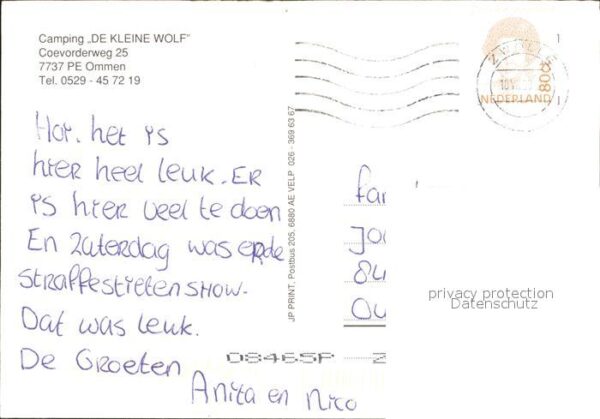 Camping „DE KLEINE WOLF"
Coevorderweg 25
7737 PE Ommen
Tel. 0529 - 45 72 19
Hoi. het is
hier heel leuk. ER
is hier veel te doen
En zaterdag was er de
straffestietenshow.
Dat was leuk.
De Groeten
Anita en Nico
JP PRINT, Postbus 205, 6880 AE VELP 026 - 369 63 67
1
80ct
NEDERLAND
fa
Jo
84
Ou
privacy protection
Datenschutz
0846SP